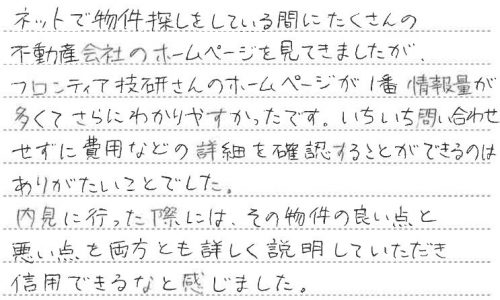 ネットで物件探しをしている間にたくさんの
不動産会社のホームページを見てきましたが、
フロンティア技研さんのホームページが1番情報量が
多くてさらにわかりやすかったです。いちいち問い合わせ
せずに費用などの詳細を確認することができるのは
ありがたいことでした。
内見に行った際には、その物件の良い点と
悪い点を両方とも詳しく説明していただき
信用できるなと感じました。